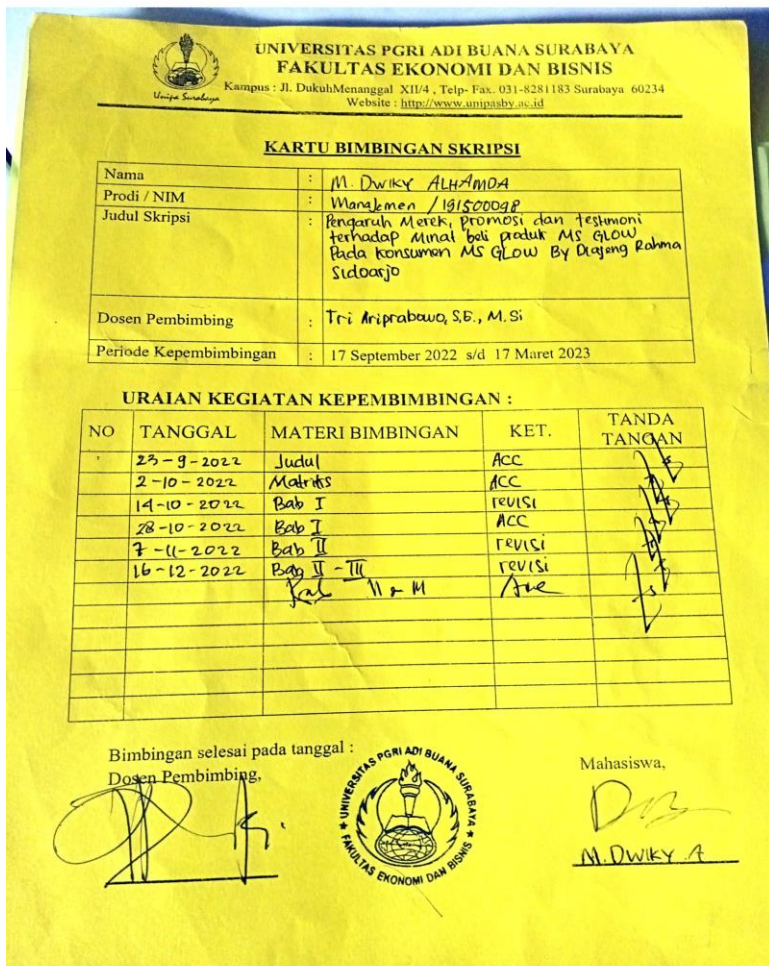 Unipa Surabaya
UNIVERSITAS PGRI ADI BUANA SURABAYA
FAKULTAS EKONOMI DAN BISNIS
Kampus : Jl. DukuhMenanggal XII/4 , Telp- Fax. 031-8281183 Surabaya 60234
Website : http://www.unipasby.ac.id
KARTU BIMBINGAN SKRIPSI
Nama : M. DWIKY ALHAMDA
Prodi / NIM : Manajemen / 191500098
Judul Skripsi : Pengaruh Merek, promosi dan testimoni
terhadap Minat beli produk MS GLOW
Pada Konsumen MS GLOW By Diajeng Rahma
Sidoarjo
Dosen Pembimbing : Tri Ariprabowo, S.E., M.Si
Periode Kepembimbingan : 17 September 2022 s/d 17 Maret 2023
URAIAN KEGIATAN KEPEMBIMBINGAN :
NO TANGGAL MATERI BIMBINGAN KET. TANDA
TANGAN
23-9-2022 Judul ACC
2-10-2022 Matriks ACC
14-10-2022 Bab I revisi
28-10-2022 Bab I ACC
7-11-2022 Bab II revisi
16-12-2022 Bab II - III revisi
Bimbingan selesai pada tanggal :
Dosen Pembimbing,
Mahasiswa,
UNIVERSITAS PGRI ADI BUANA SURABAYA
FAKULTAS EKONOMI DAN BISNIS
M. DWIKY A